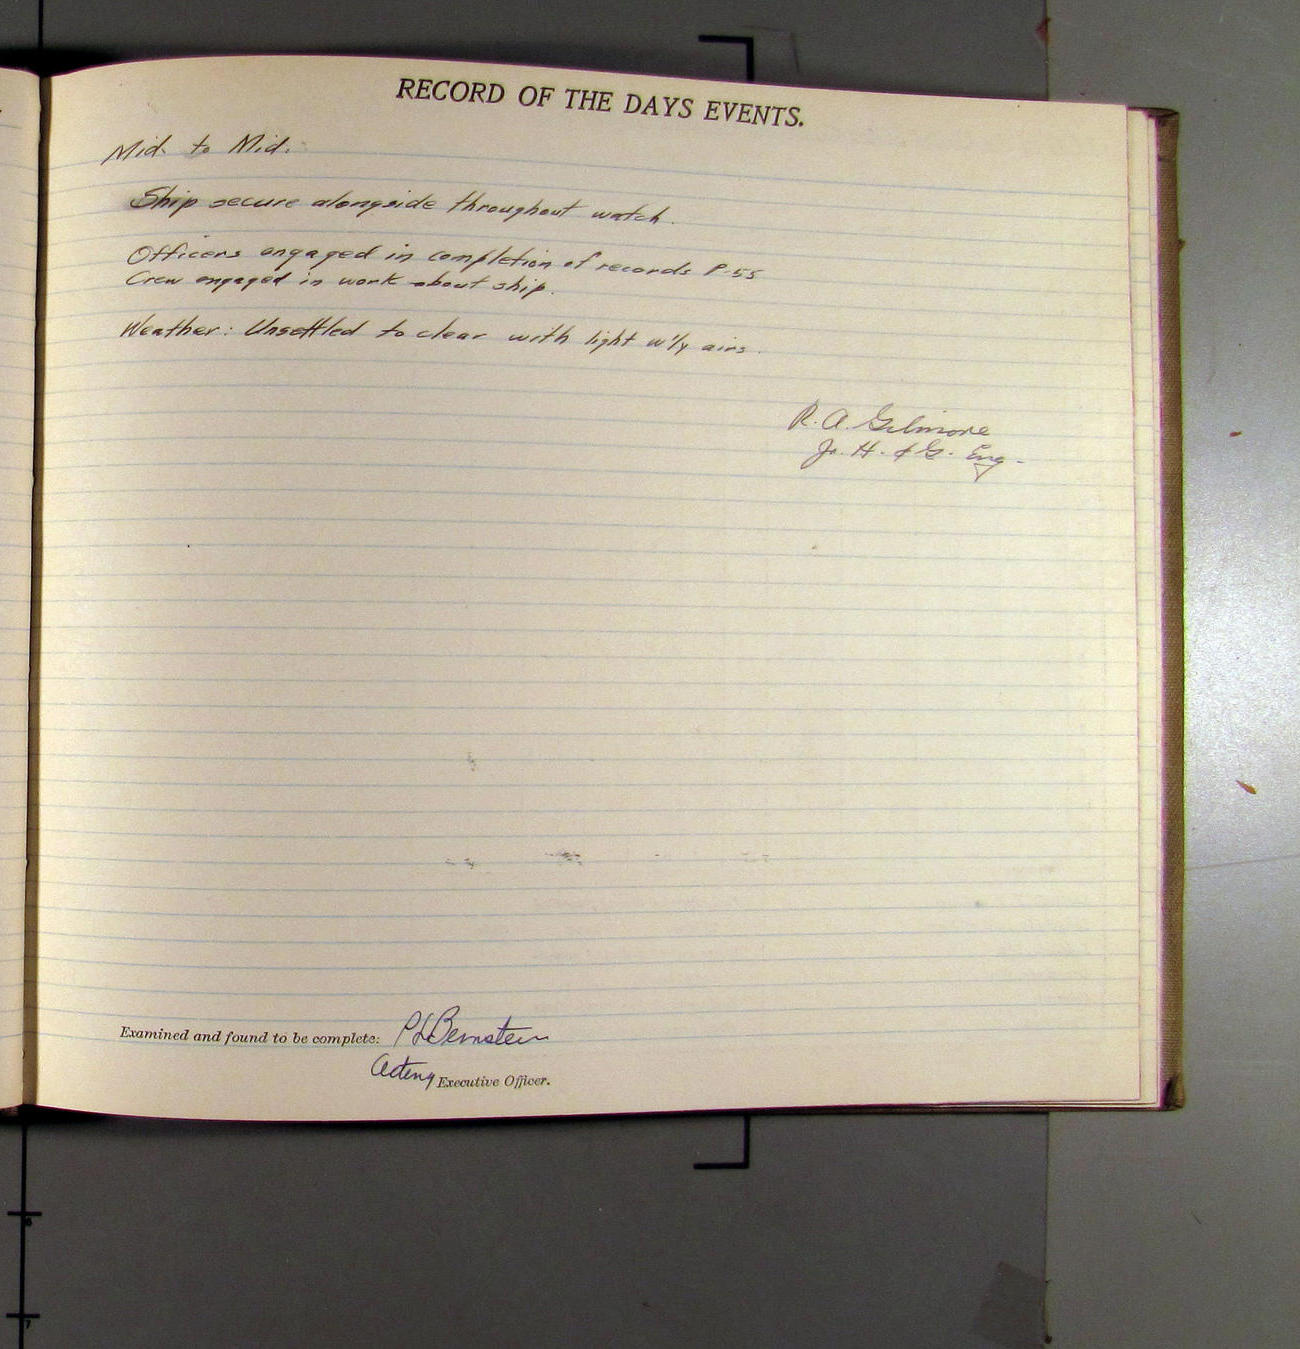 RECORD OF THE DAYS EVENTS.
Mid. to Mid.
Ship secure alongside throughout watch.
Officers engaged in completion of records P-55
Crew engaged in work about ship.
Weather: Unsettled to clear with light w'ly airs.
R. A. Gilmore
Jr. H. & G. Eng.
Examined and found to be complete: P L Bernstein
Acting Executive Officer.
6
7